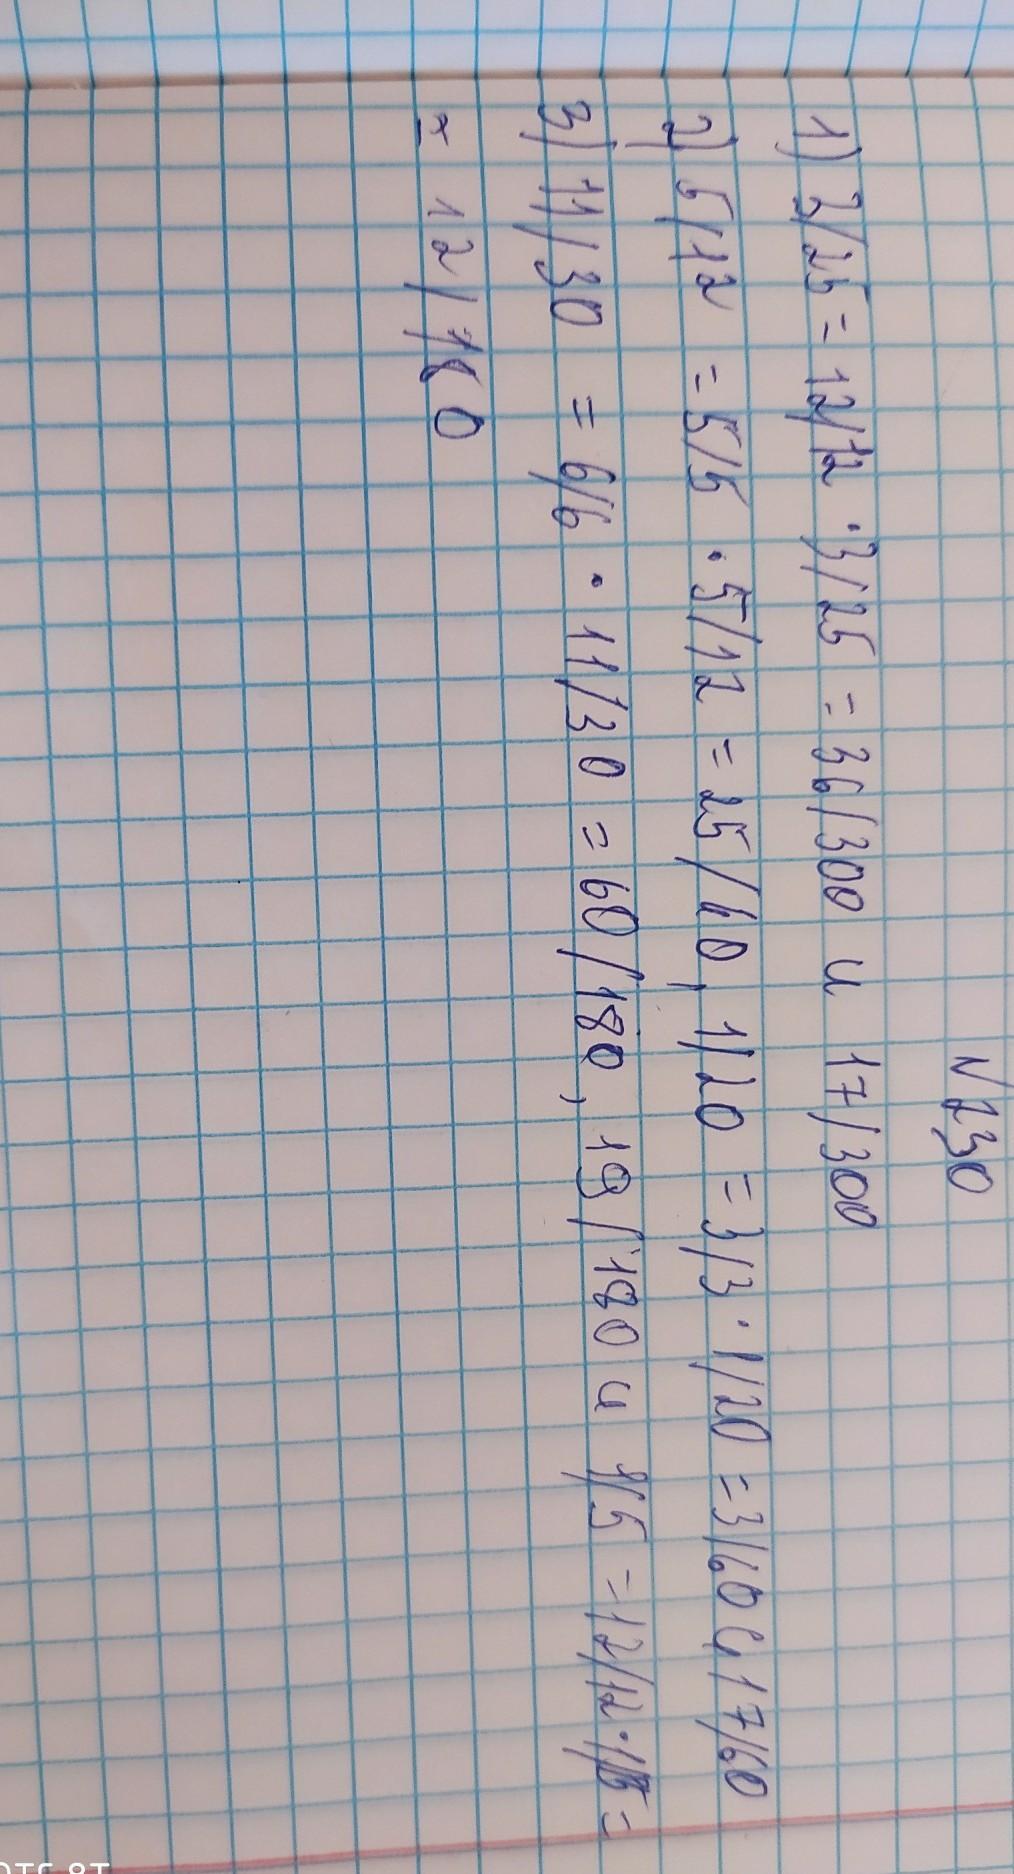 N 230
1) 3/25 = 12/12 · 3/25 = 36/300 и 17/300
2) 5/12 = 5/5 · 5/12 = 25/60, 1/20 = 3/3 · 1/20 = 3/60 и 17/60
3) 11/30 = 6/6 · 11/30 = 60/180, 19/180 и 1/5 = 12/12 · 1/5 =
= 12/180